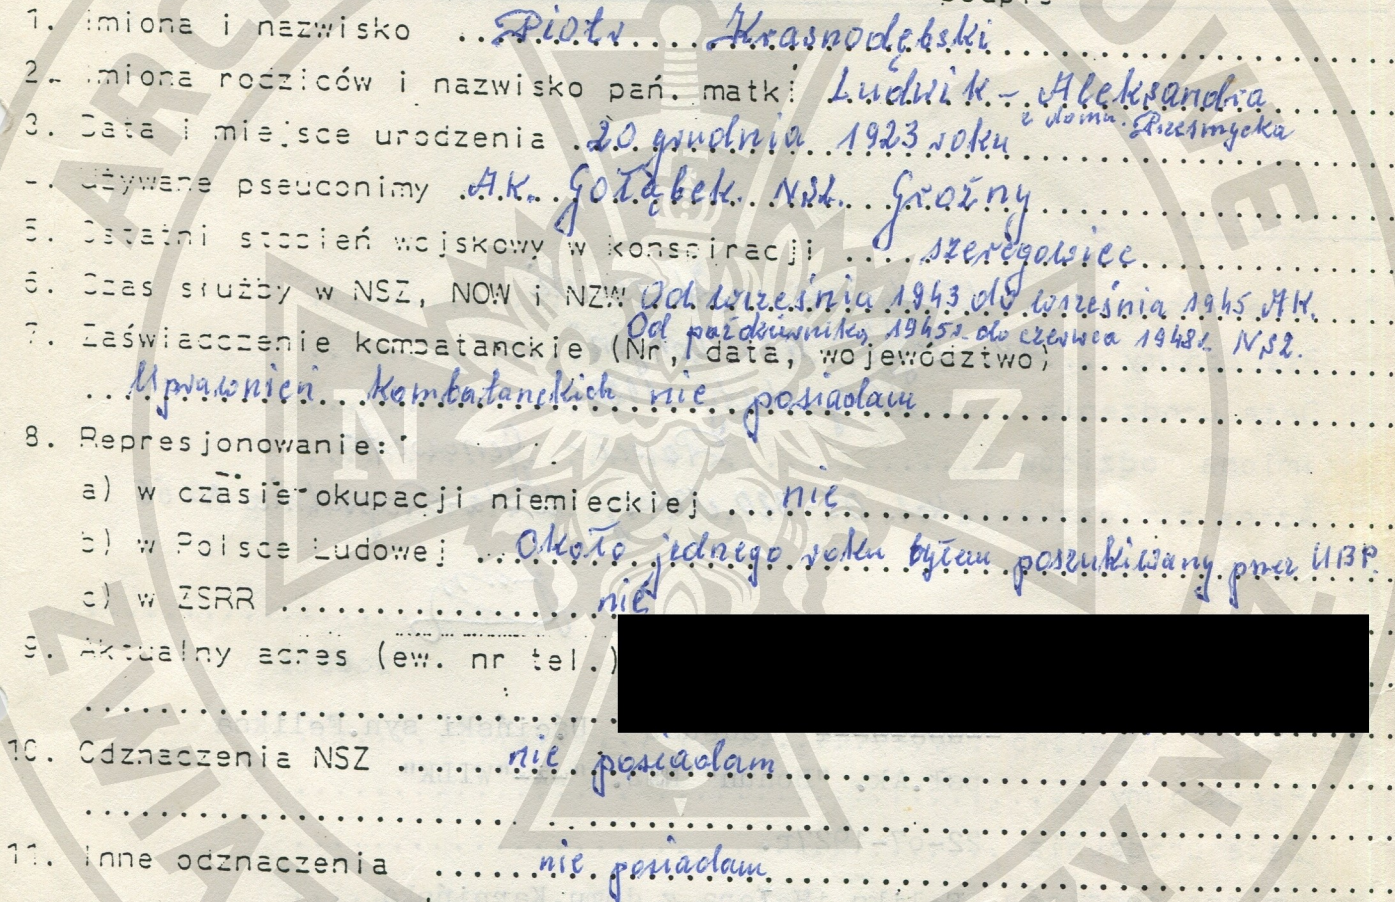 podpis
1. Imiona i nazwisko .. Piotr .... Krasnodębski
2. Imiona rodziców i nazwisko pań. matki Ludwik - Aleksandra
z domu. Przesmycka
3. Data i miejsce urodzenia . 20 grudnia 1923 roku
4. Używane pseudonimy . A.K. Gołąbek. NSZ. Groźny
5. Ostatni stopień wojskowy w konspiracji .... szeregowiec
6. Czas służby w NSZ, NOW i NZW Od września 1943 do września 1945 AK.
Od października 1945 r. do czerwca 1948 r. NSZ.
7. Zaświadczenie kombatanckie (Nr, data, województwo)
Uprawnień kombatanckich nie posiadam
8. Represjonowanie:
a) w czasie okupacji niemieckiej ... nie
b) w Polsce Ludowej .. Około jednego roku byłem poszukiwany przez UBP.
c) w ZSRR ................ nie
9. Aktualny adres (ew. nr tel.)
10. Odznaczenia NSZ ... nie posiadam
11. Inne odznaczenia .... nie posiadam
N Z